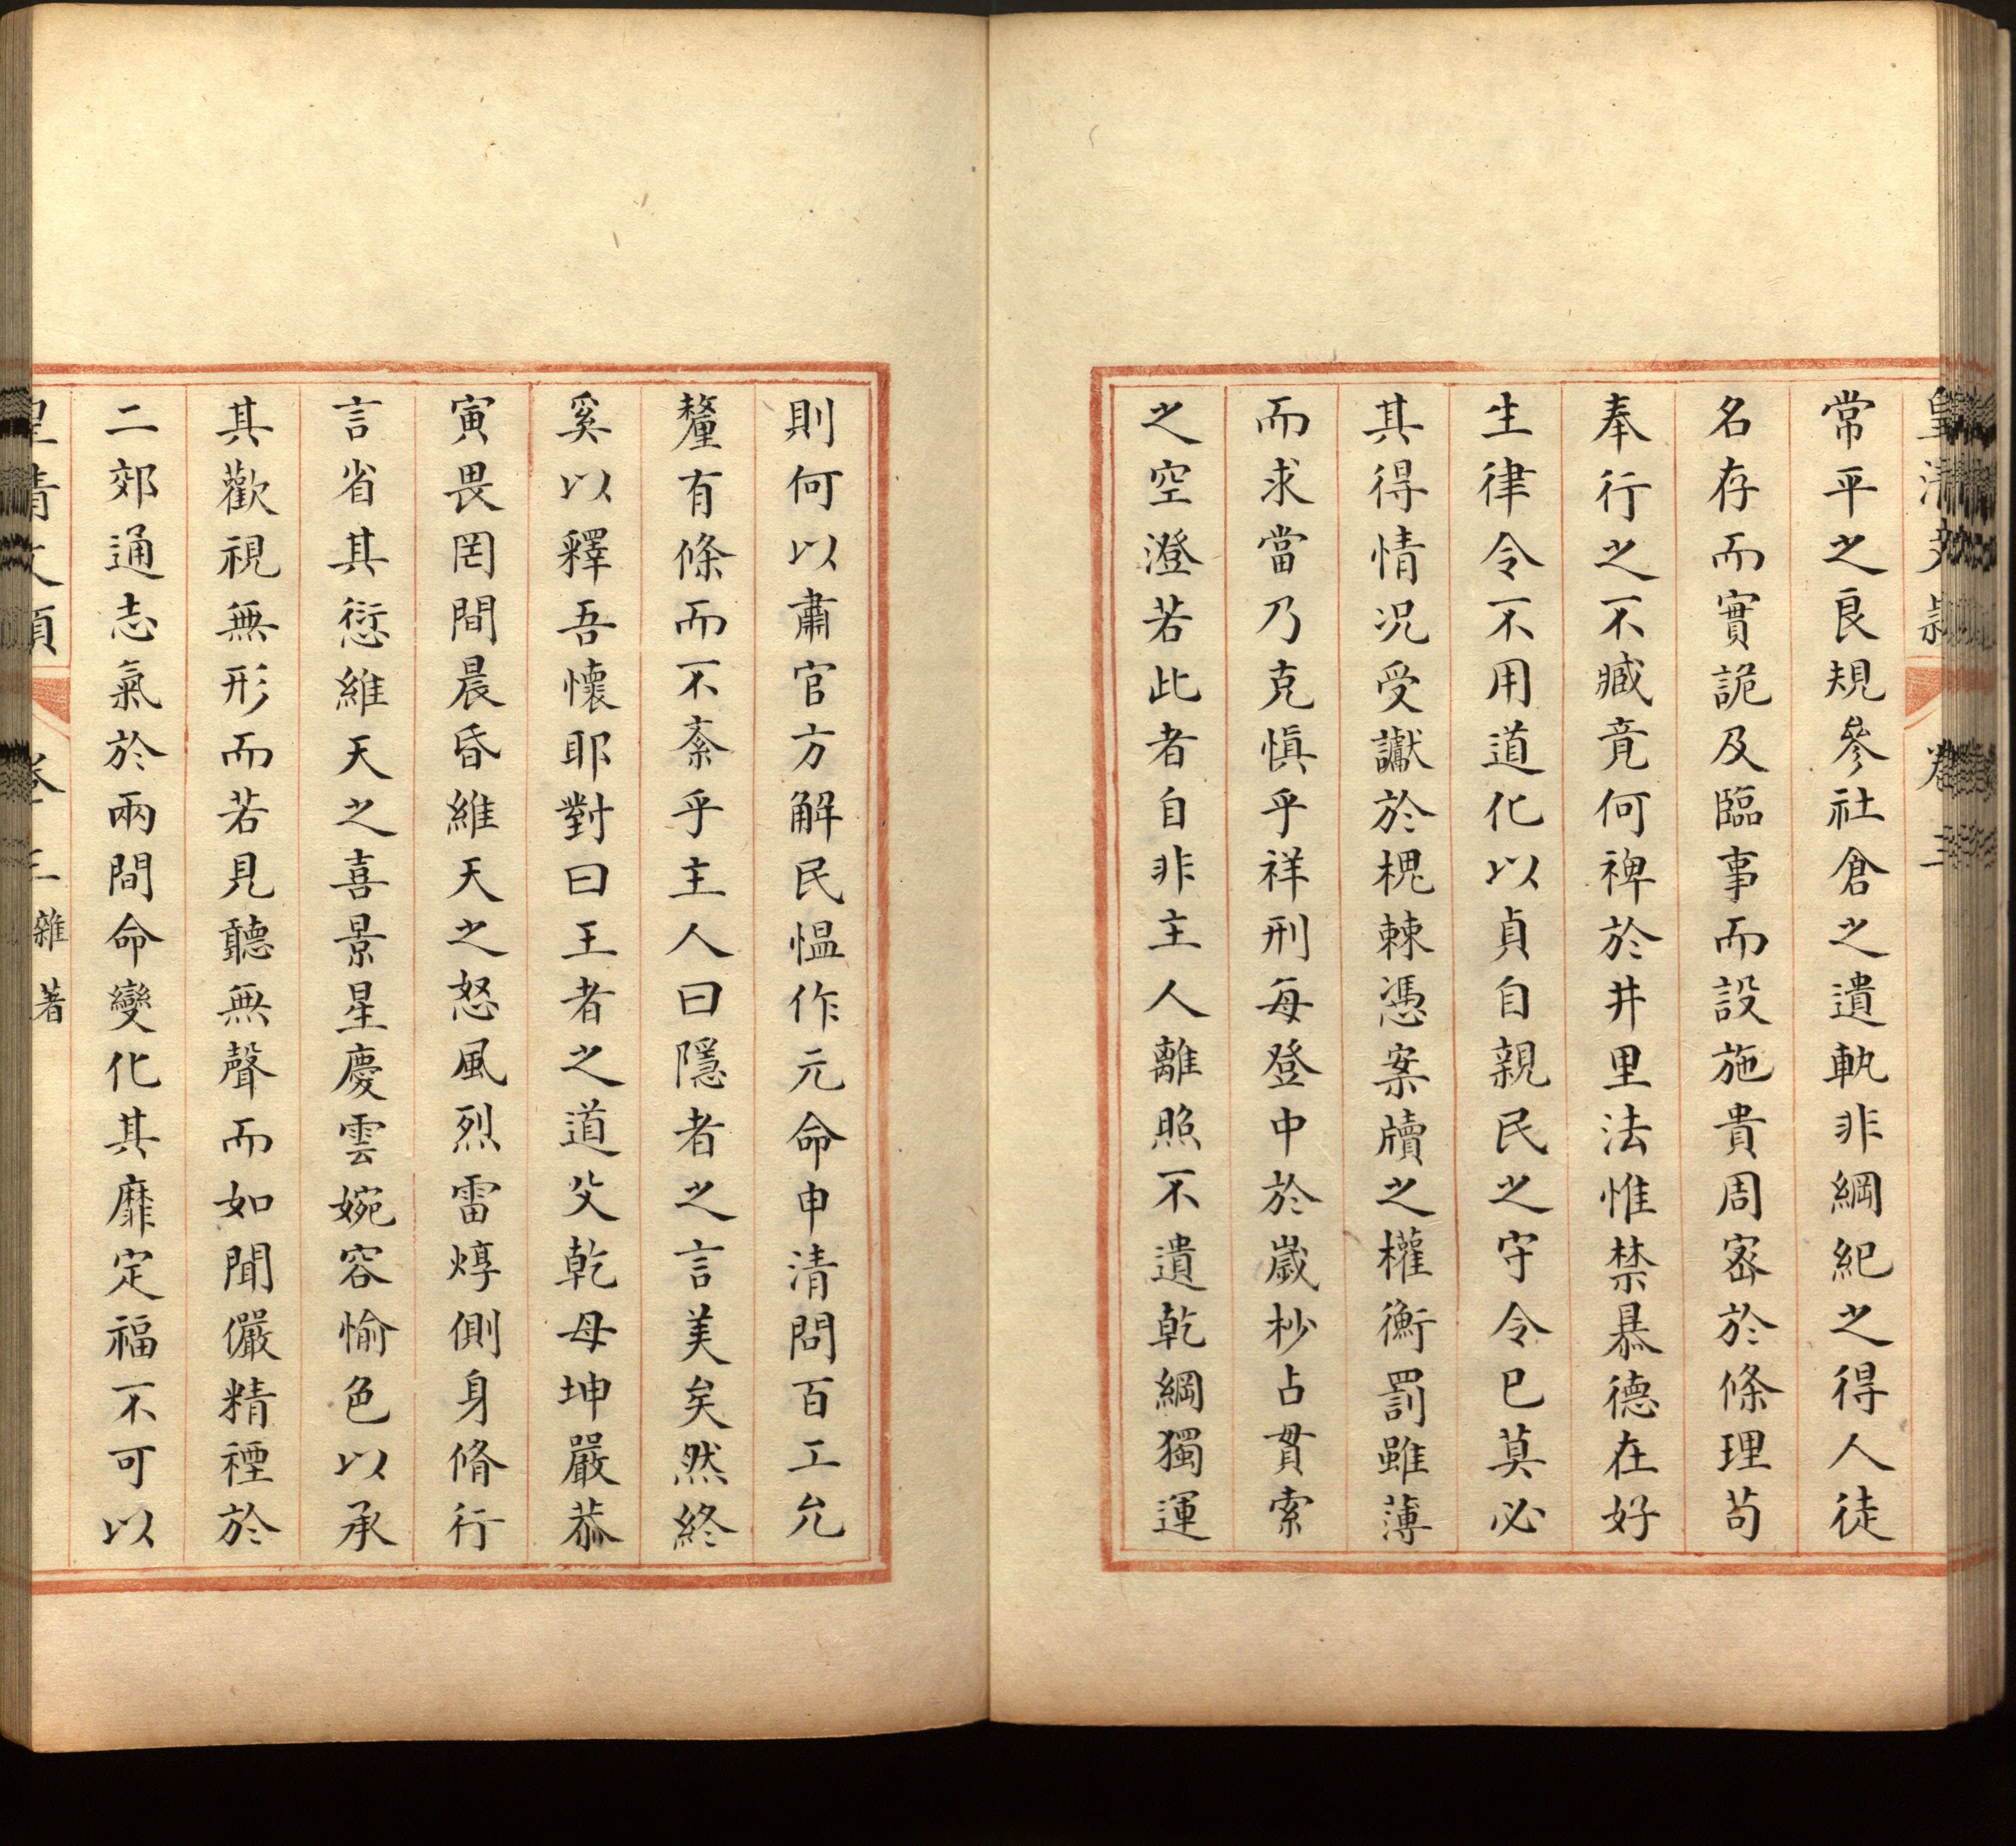 皇清文穎 卷三
常平之良規參社倉之遺軌非綱紀之得人徒
名存而實詭及臨事而設施貴周宻於條理苟
奉行之不臧竟何裨於井里法惟禁暴德在好
生律令不用道化以貞自親民之守令巳莫必
其得情况受讞於槐棘憑案牘之權衡罰雖薄
而求當乃克慎乎祥刑每登中於嵗杪占貫索
之空澄若此者自非主人離照不遺乾綱獨運
則何以肅官方解民愠作元命申清問百工允
釐有條而不紊乎主人曰隱者之言美矣然終
奚以釋吾懷耶對曰王者之道父乾母坤嚴恭
寅畏罔間晨昏維天之怒風烈雷焞側身脩行
言省其愆維天之喜景星慶雲婉容愉色以承
其歡視無形而若見聽無聲而如聞儼精禋於
二郊通志氣於兩間命變化其靡定福不可以
皇清文穎 卷三 雜著